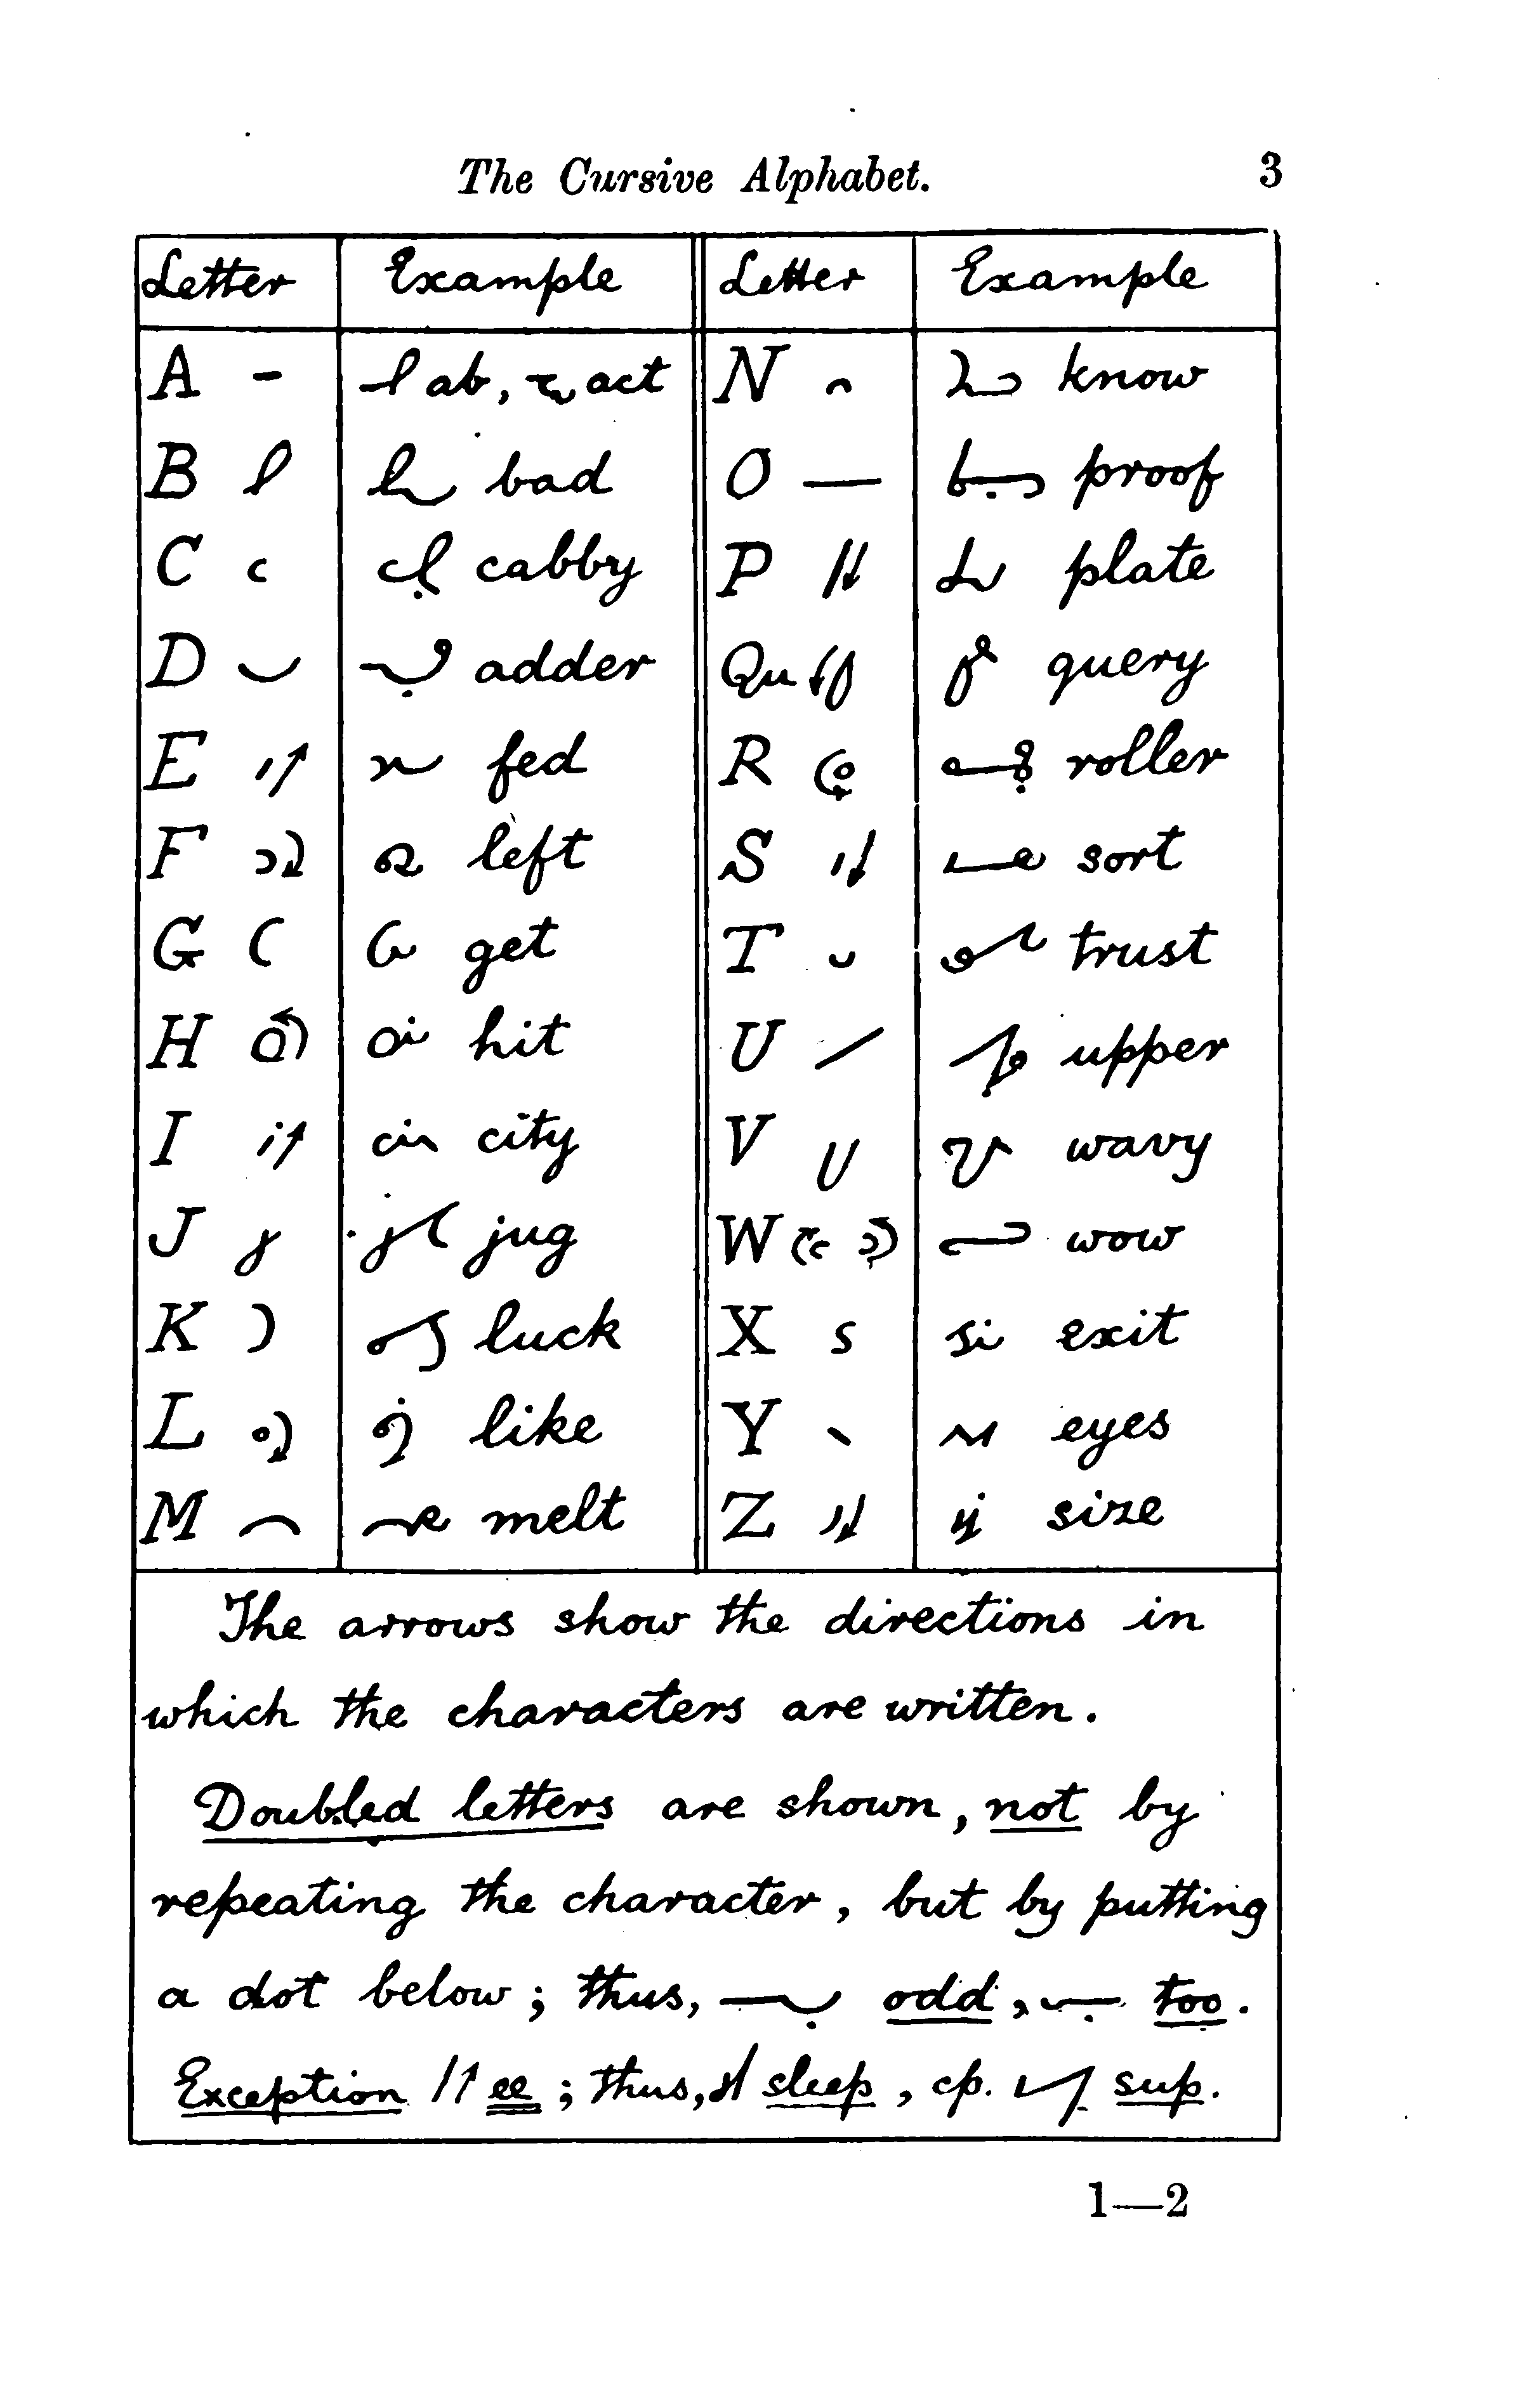 The Cursive Alphabet. 3
Letter Example Letter Example
A ab, act N know
B bad O proof
C cabby P plate
D adder Qu query
E fed R roller
F left S sort
G get T trust
H hit U upper
I city V wavy
J jug W wow
K luck X exit
L like Y eyes
M melt Z size
The arrows show the directions in
which the characters are written.
Doubled letters are shown, not by
repeating the character, but by putting
a dot below; thus, odd, too.
Exception ee; thus, sleep, cp. sup.
1—2